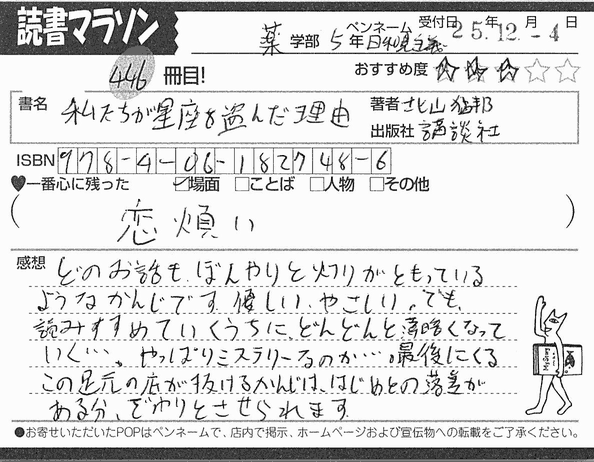 読書マラソン
薬学部 5年 ペンネーム 日和見主義 受付日 25年12月-4日
446冊目! おすすめ度 ★★★☆☆
書名 私たちが星座を盗んだ理由 著者 北山猛邦
出版社 講談社
ISBN 978-4-06-182748-6
♥一番心に残った ☑場面 □ことば □人物 □その他
(恋煩い)
感想 どのお話も、ぼんやりと灯りがともっている
ようなかんじです。優しい、やさしい。でも、
読みすすめていくうちに、どんどんと薄暗くなって
いく…。やっぱりミステリーなのか…。最後にくる
この足元の底が抜けるかんじは、はじめとの落差が
ある分、ぞやりとさせられます
●お寄せいただいたPOPはペンネームで、店内で掲示、ホームページおよび宣伝物への転載をご了承ください。